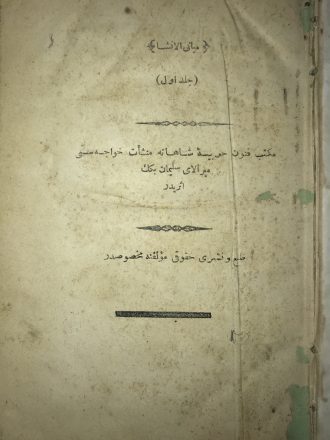 ﴿مبانی الانشا﴾
(جلد اول)
مکتب فنون حربیهٔ شاهانه منشأت خواجه سی
میرالای سلیمان بکك
اثریدر
طبع و نشری حقوقی مؤلفنه مخصوصدر